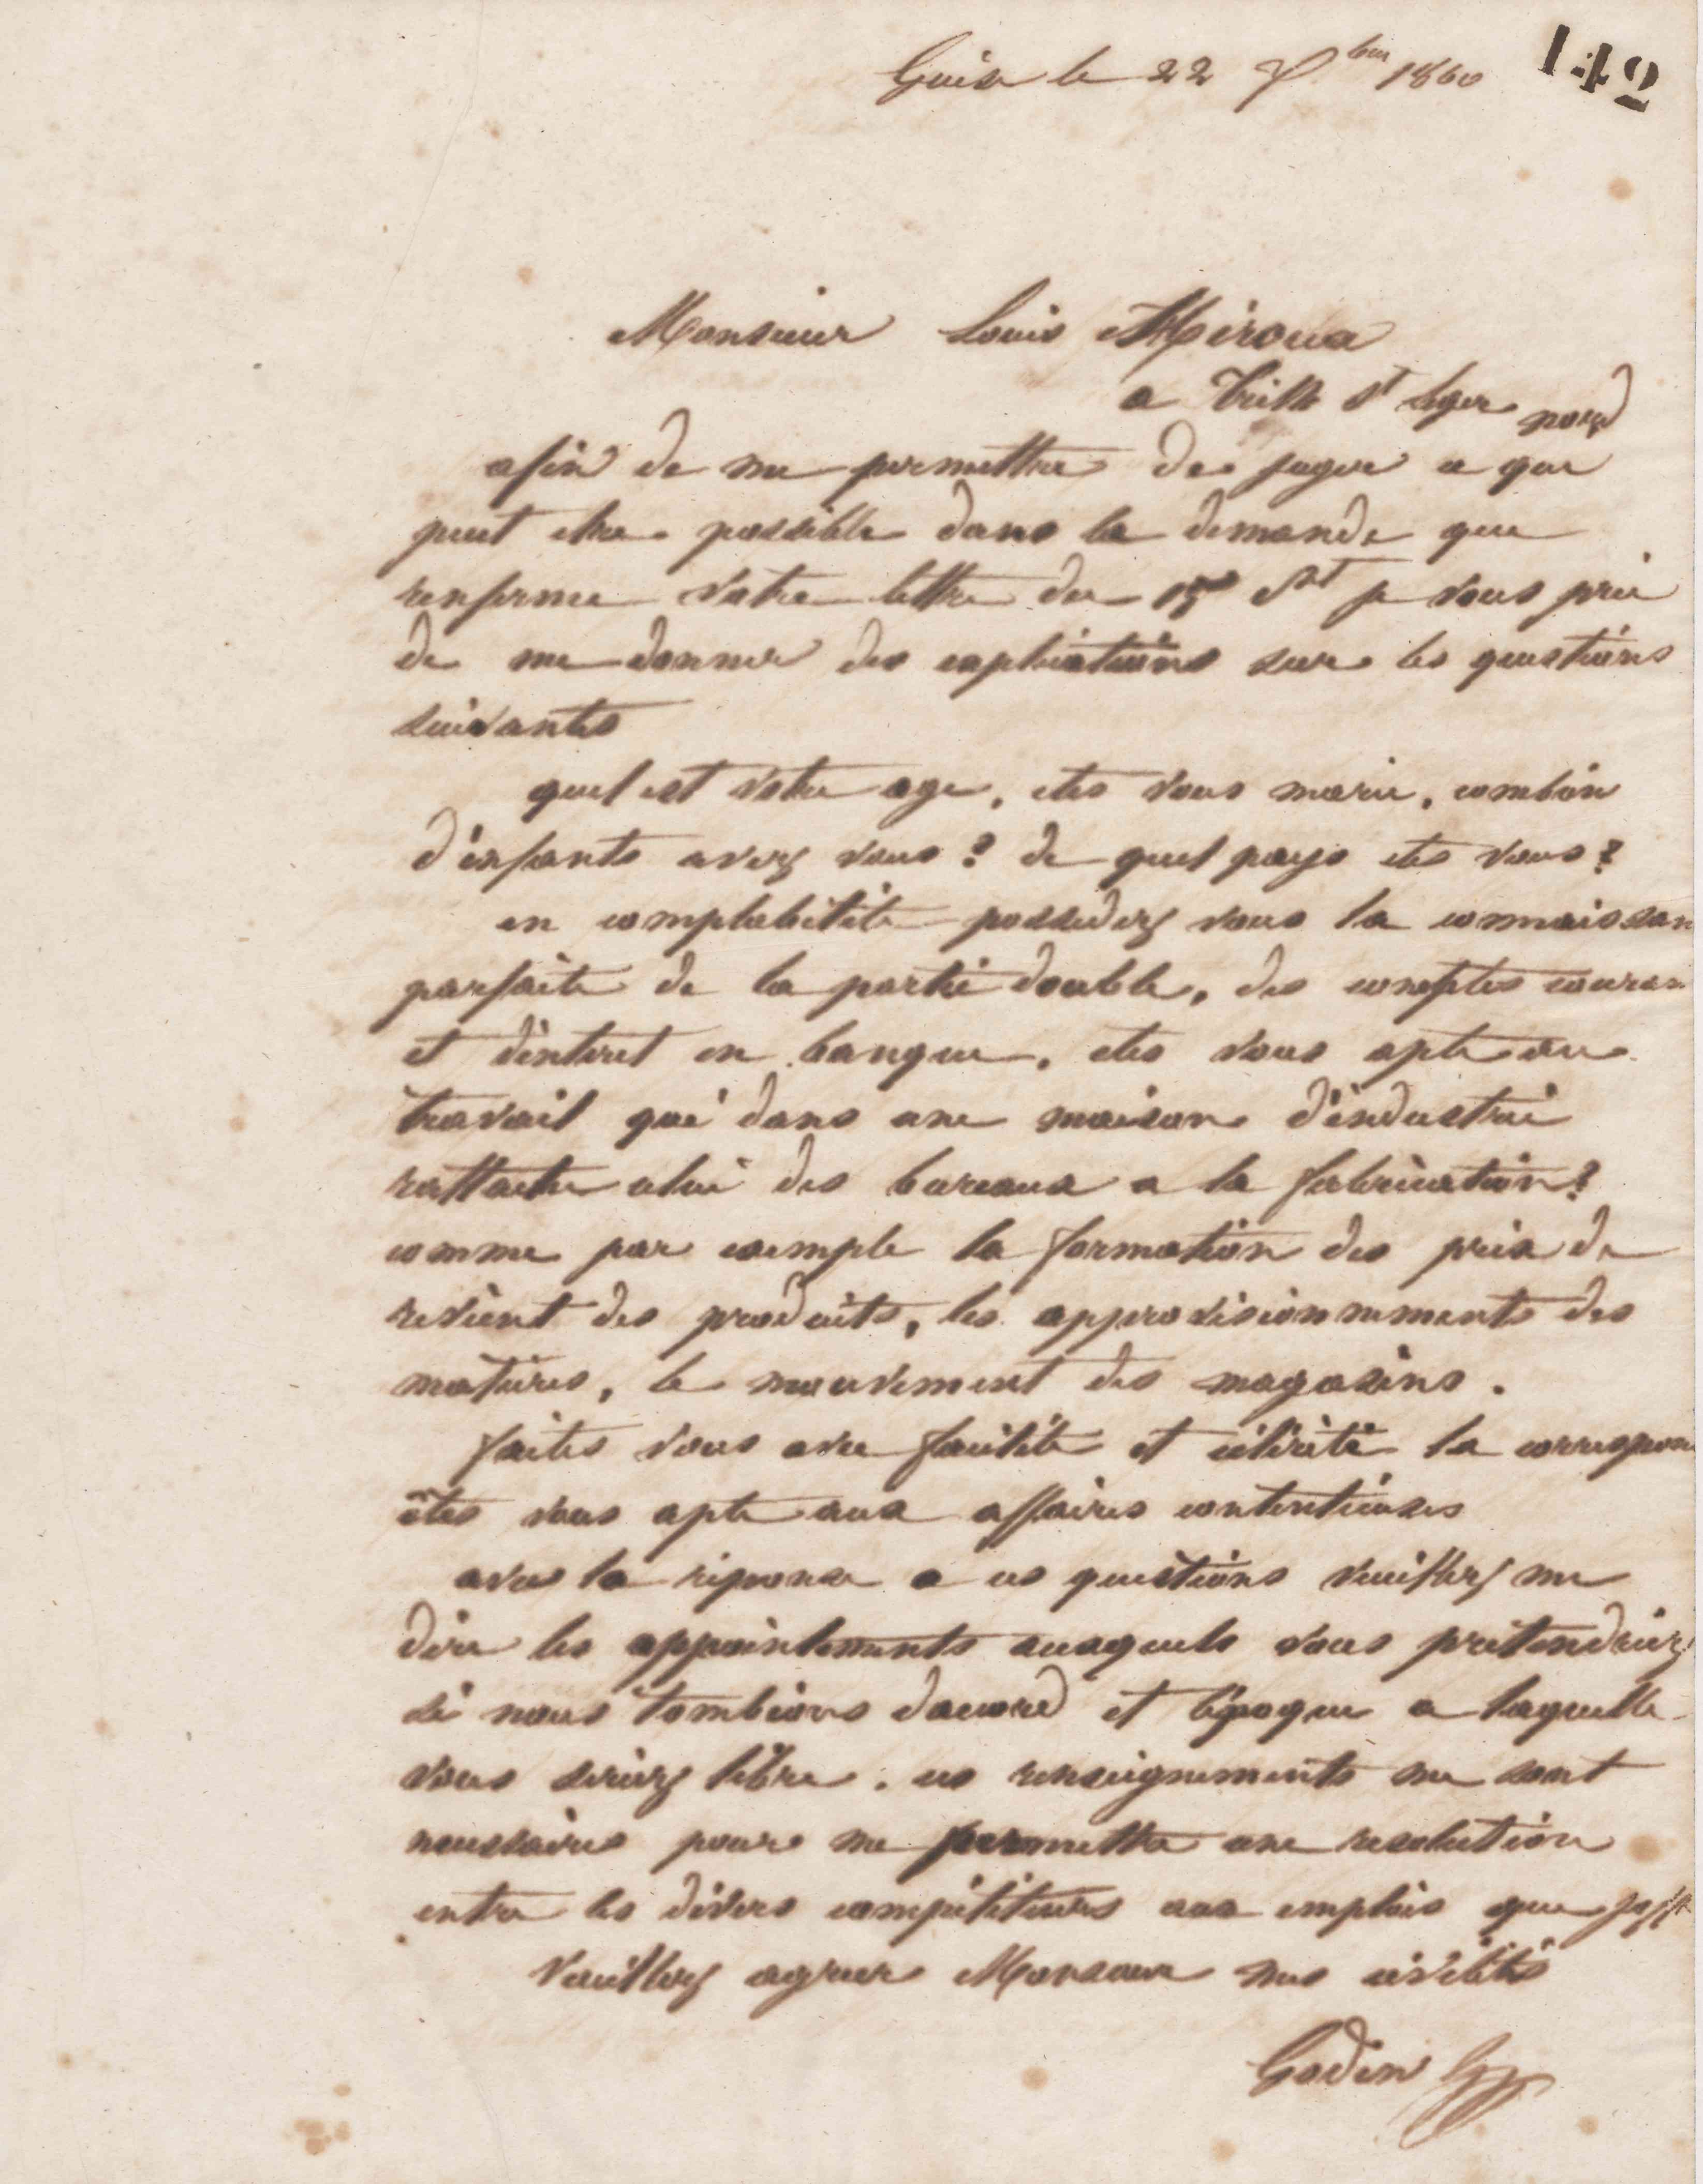 Guise le 22 7bre 1860
142
Monsieur Louis Miroux
a Trith St Leger nord
afin de me permettre de juger ce que
peut etre possible dans la demande que
renferme votre lettre du 15 ct je vous prie
de me donner des explications sur les questions
suivantes
quel est votre age, etes vous marie, combien
d'enfants avez vous ? de quel pays etes vous ?
en comptabilité possedez vous la connaissan
parfaite de la partie double, des comptes couran
et d'interet en banque, etes vous apte au
travail qui dans une maison d'industrie
rattache celui des bureaux a la fabrication ?
comme par exemple la formation des prix de
revient des produits, les approvisionnements des
matières, le mouvement des magasins.
faites vous avec facilité et célérité la correspon
êtes vous apte aux affaires contentieuses
avec la réponse a ces questions veuillez me
dire les appointements auxquels vous prétendriez
si nous tombions d'accord et l'époque a laquelle
vous seriez libre. ces renseignements me sont
necessaires pour me permettre une resolution
entre les divers compétiteurs aux emplois que
Veuillez agreer Monsieur mes civilités
Godin